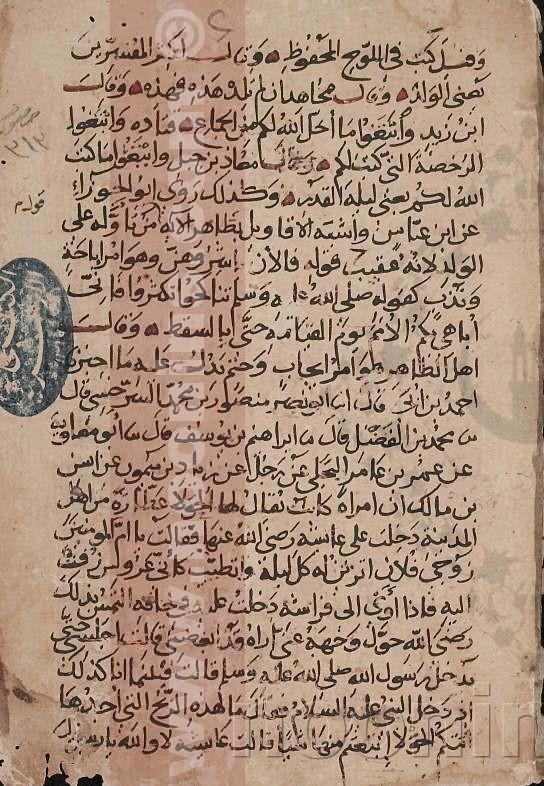 وقيل كتب في اللوح المحفوظ وقال اكثر المفسرين
يعني الولد وقال مجاهد ان لم تلد هذه فهذه وقال
ابن زيد وابتغوا ما احل الله لكم من الجماع قتادة وابتغوا
الرخصة التي كتب لكم وقال معاذ بن جبل وابتغوا ما كتب
الله لكم يعني ليلة القدر وكذلك روى ابو الجوزاء
عن ابن عباس واشبه الاقاويل بظاهر الاية من تأوله على
الولد لانه عقيب قوله فالآن باشروهن وهو امر اباحة
وندب كقوله صلى الله عليه وسلم تناكحوا تكثروا فاني
اباهي بكم الامم يوم القيامة حتى بالسقط وقال
اهل الظاهر هو امر ايجاب وختم يدل عليه ما اخبرنا
احمد بن ابي قال ابو نصر منصور بن محمد السرخسي قال
محمد بن الفضل قال ابراهيم بن يوسف قال ابو معاوية
عن عمر بن عامر البجلي عن رجل عن زياد بن ميمون عن انس
بن مالك ان امراة كانت يقال لها الحولا عطارة من اهل
المدينة دخلت على عائشة رضي الله عنها فقالت يا ام المؤمنين
زوجي فلان اتزين له كل ليلة واتطيب كاني عروس زفت
اليه فاذا اوى الى فراشه دخلت عليه في لحافه التمس بذلك
رضي الله حول وجهه عني اراه قد ابغضني قالت اجلسي حتى
يدخل رسول الله صلى الله عليه وسلم قالت فبينما انا كذلك
اذ دخل النبي عليه السلام فقال ما هذه الريح التي اجدها
اتتكم الحولا ابتعتم منها شيئا قالت عائشة لا والله يا رسول